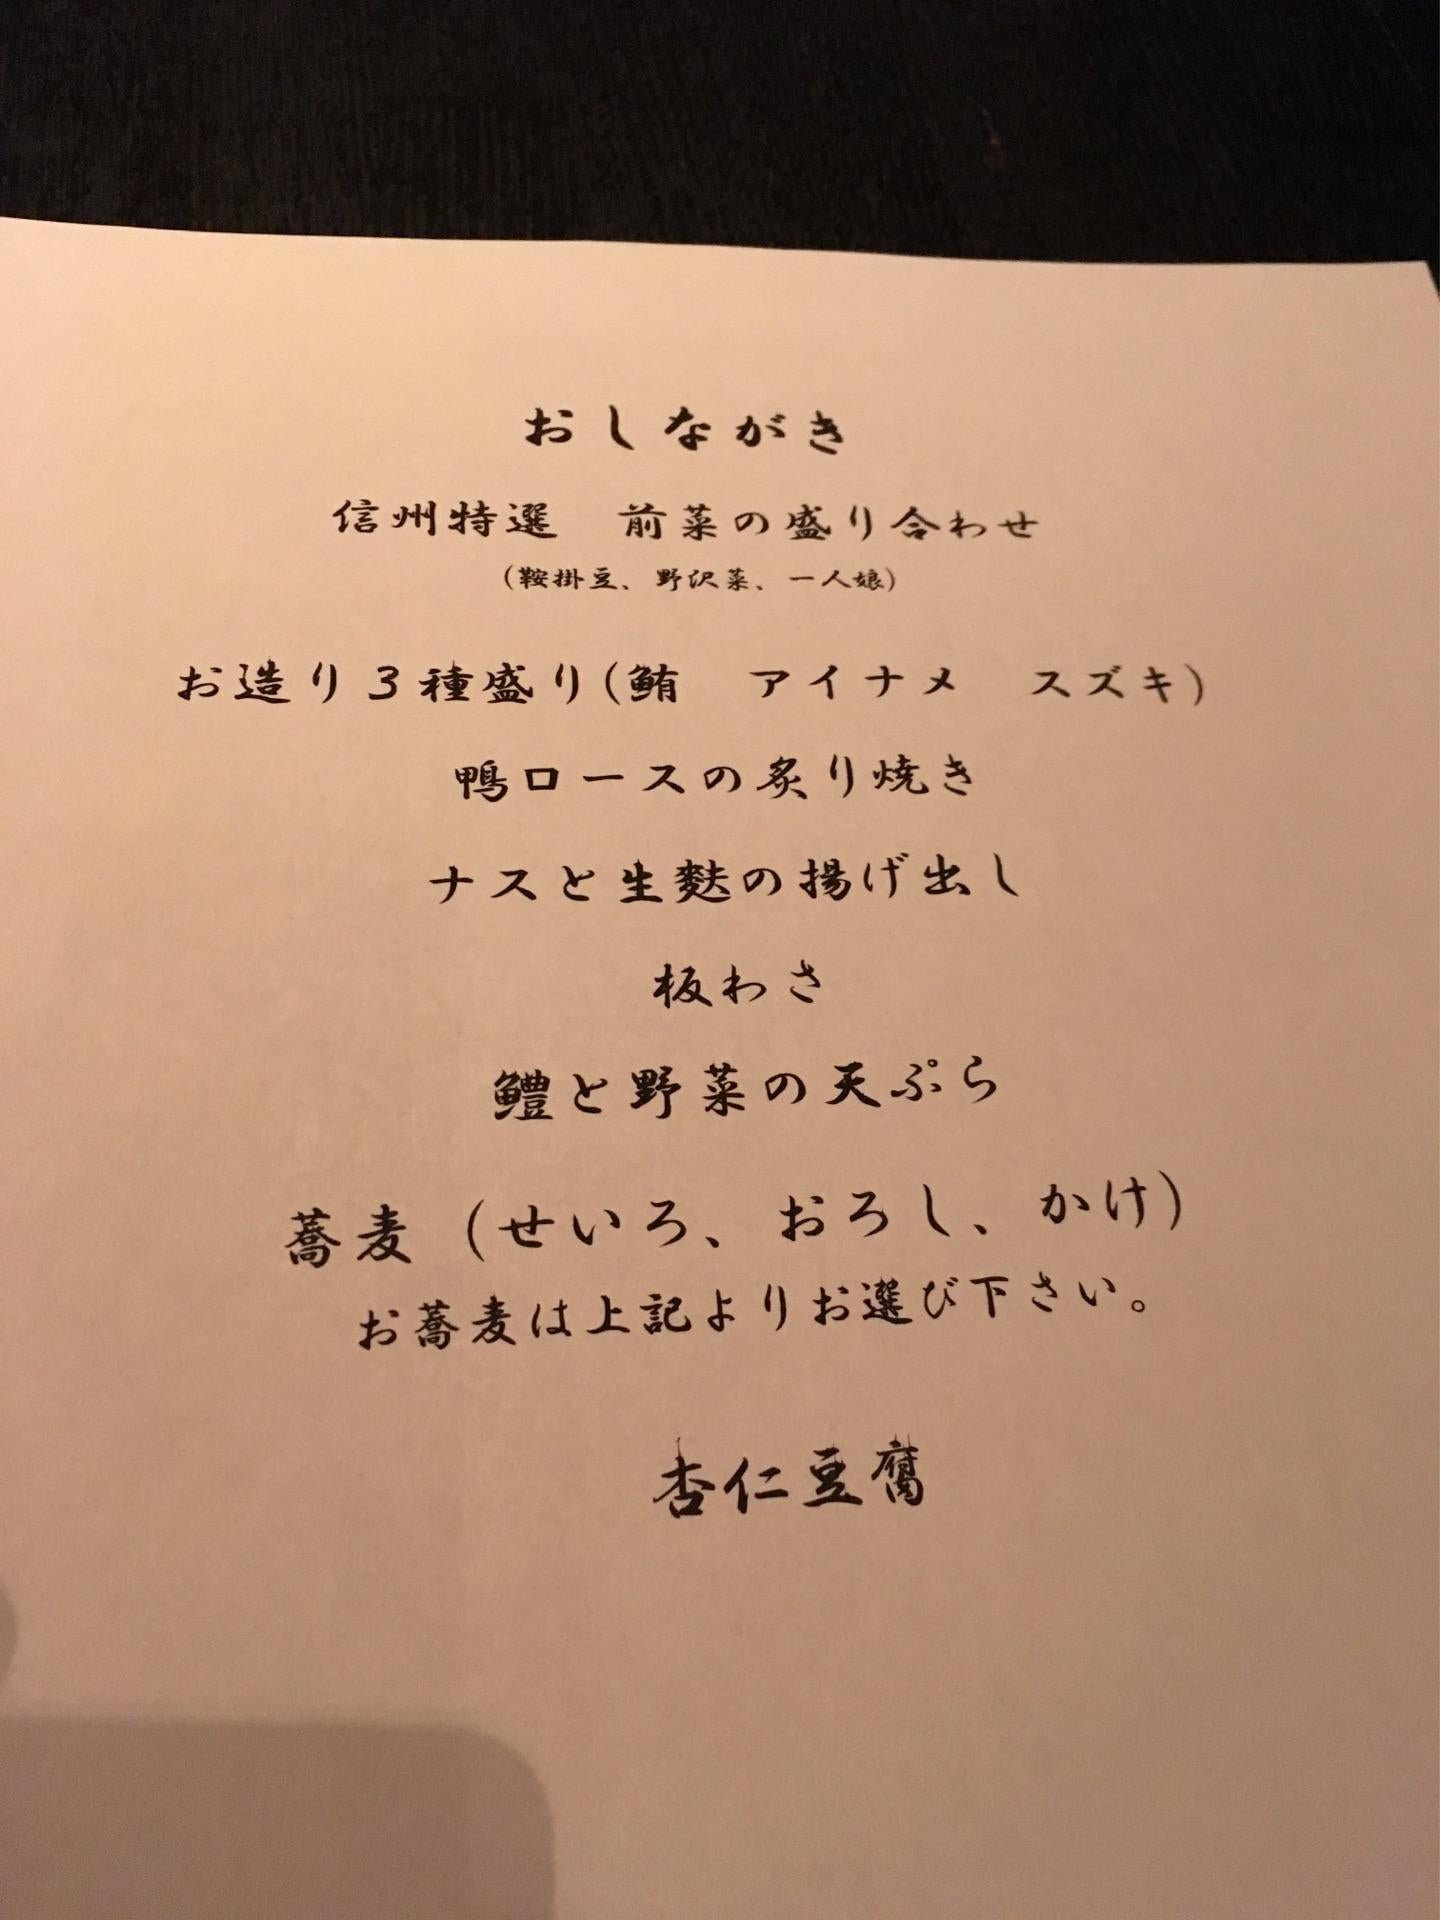 おしながき
信州特選　前菜の盛り合わせ
(鞍掛豆、野沢菜、一人娘)
お造り３種盛り(鮪　アイナメ　スズキ)
鴨ロースの炙り焼き
ナスと生麩の揚げ出し
板わさ
鱧と野菜の天ぷら
蕎麦（せいろ、おろし、かけ）
お蕎麦は上記よりお選び下さい。
杏仁豆腐